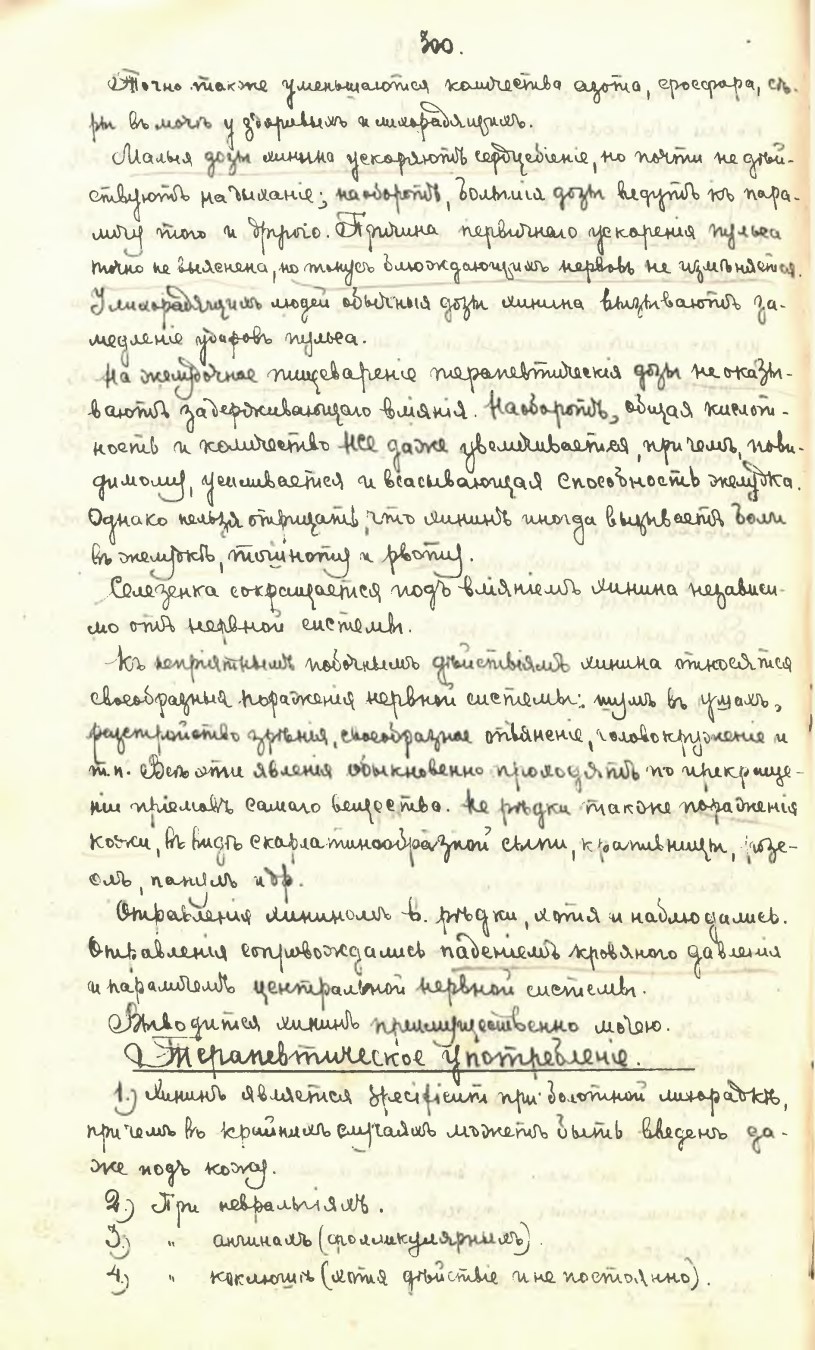 300.
Точно также уменьшаются количества азота, фосфора, сѣ-
ры въ мочѣ у здоровыхъ и лихорадящихъ.
Малыя дозы хинина ускоряютъ сердцебіеніе, но почти не дѣй-
ствуютъ на дыханіе; наоборотъ, большія дозы ведутъ къ пара-
личу того и другого. Причина первичнаго ускоренія пульса
точно не выяснена, но тонусъ блюждающихъ нервовъ не измѣняется.
У лихорадящихъ людей обычныя дозы хинина вызываютъ за-
медленіе ударовъ пульса.
На желудочное пищевареніе терапевтическія дозы не оказы-
ваютъ задерживающаго вліянія. Наоборотъ, общая кислот-
ность и количество HCl даже увеличивается, при чемъ, пови-
димому, усиливается и всасывающая способность желудка.
Однако нельзя отрицать, что хининъ иногда вызываетъ боли
въ желудкѣ, тошноту и рвоту.
Селезенка сокращается подъ вліяніемъ хинина независи-
мо отъ нервной системы.
Къ непріятнымъ побочнымъ дѣйствіямъ хинина относятся
своеобразныя пораженія нервной системы: шумъ въ ушахъ,
разстройство зрѣнія, своеобразное опьяненіе, головокруженіе и
т.п. Всѣ эти явленія обыкновенно проходятъ по прекраще-
ніи пріемовъ самаго вещества. Не рѣдки также пораженія
кожи, въ видѣ скарлатинообразной сыпи, крапивницы, розе-
олъ, папулъ и др.
Отравленія хининомъ в. рѣдки, хотя и наблюдались.
Отравленія сопровождались паденіемъ кровяного давленія
и параличемъ центральной нервной системы.
Выводится хининъ преимущественно мочею.
Терапевтическое употребленіе.
1.) Хининъ является specificum при болотной лихорадкѣ,
при чемъ въ крайнихъ случаяхъ можетъ быть введенъ да-
же подъ кожу.
2.) При невралгіяхъ.
3.) " ангинахъ (фолликулярныхъ).
4.) " коклюшѣ (хотя дѣйствіе и не постоянно).